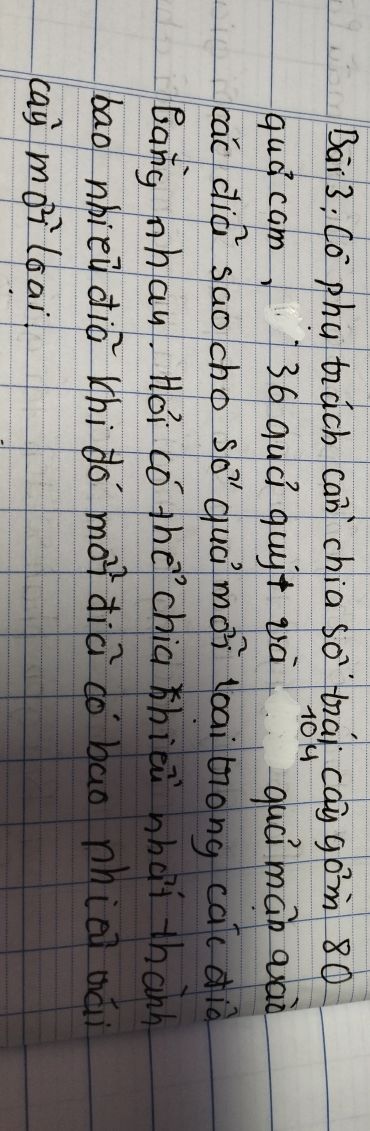 Bài 3: Cô phụ trách cần chia số trái cây gồm 80
quả cam, 36 quả quýt và 104 quả mận vào
các đĩa sao cho số quả mỗi loại trong các đĩa
bằng nhau. Hỏi có thể chia nhiều nhất thành
bao nhiêu đĩa khi đó mỗi đĩa có bao nhiêu trái
cây mỗi loại.